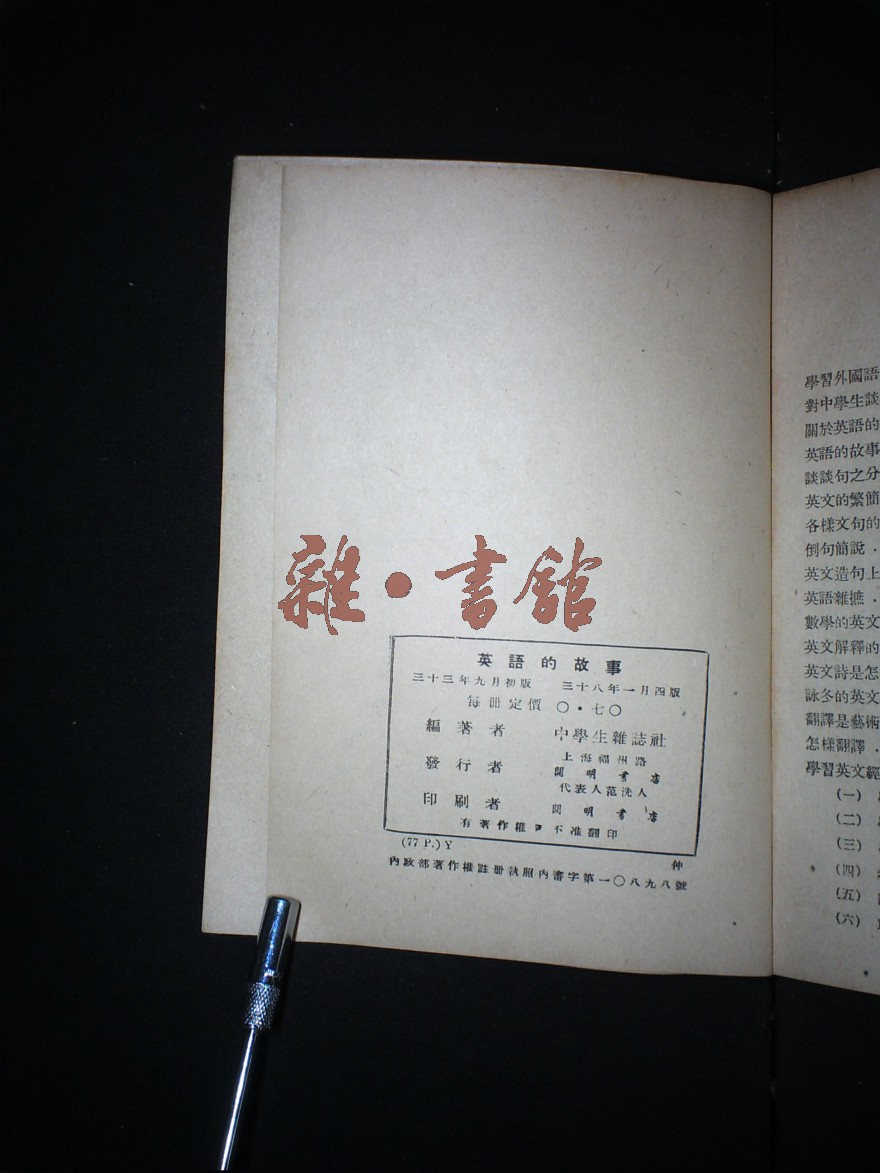 雜·書館
英語的故事
三十三年九月初版 三十八年一月四版
每冊定價 〇·七〇
編著者 中學生雜誌社
發行者 上海福州路
開明書店
代表人范洗人
印刷者 開明書店
有著作權 不准翻印
(77 P.) Y 仲
內政部著作權註冊執照內審字第一〇八九八號
學習外國語
對中學生談
關於英語的
英語的故事
談談句之分
英文的繁簡
各樣文句的
倒句簡說
英文造句上
英語雜摭
數學的英文
英文解釋的
英文詩是怎
詠冬的英文
翻譯是藝術
怎樣翻譯
學習英文經
(一)
(二)
(三)
(四)
(五)
(六)